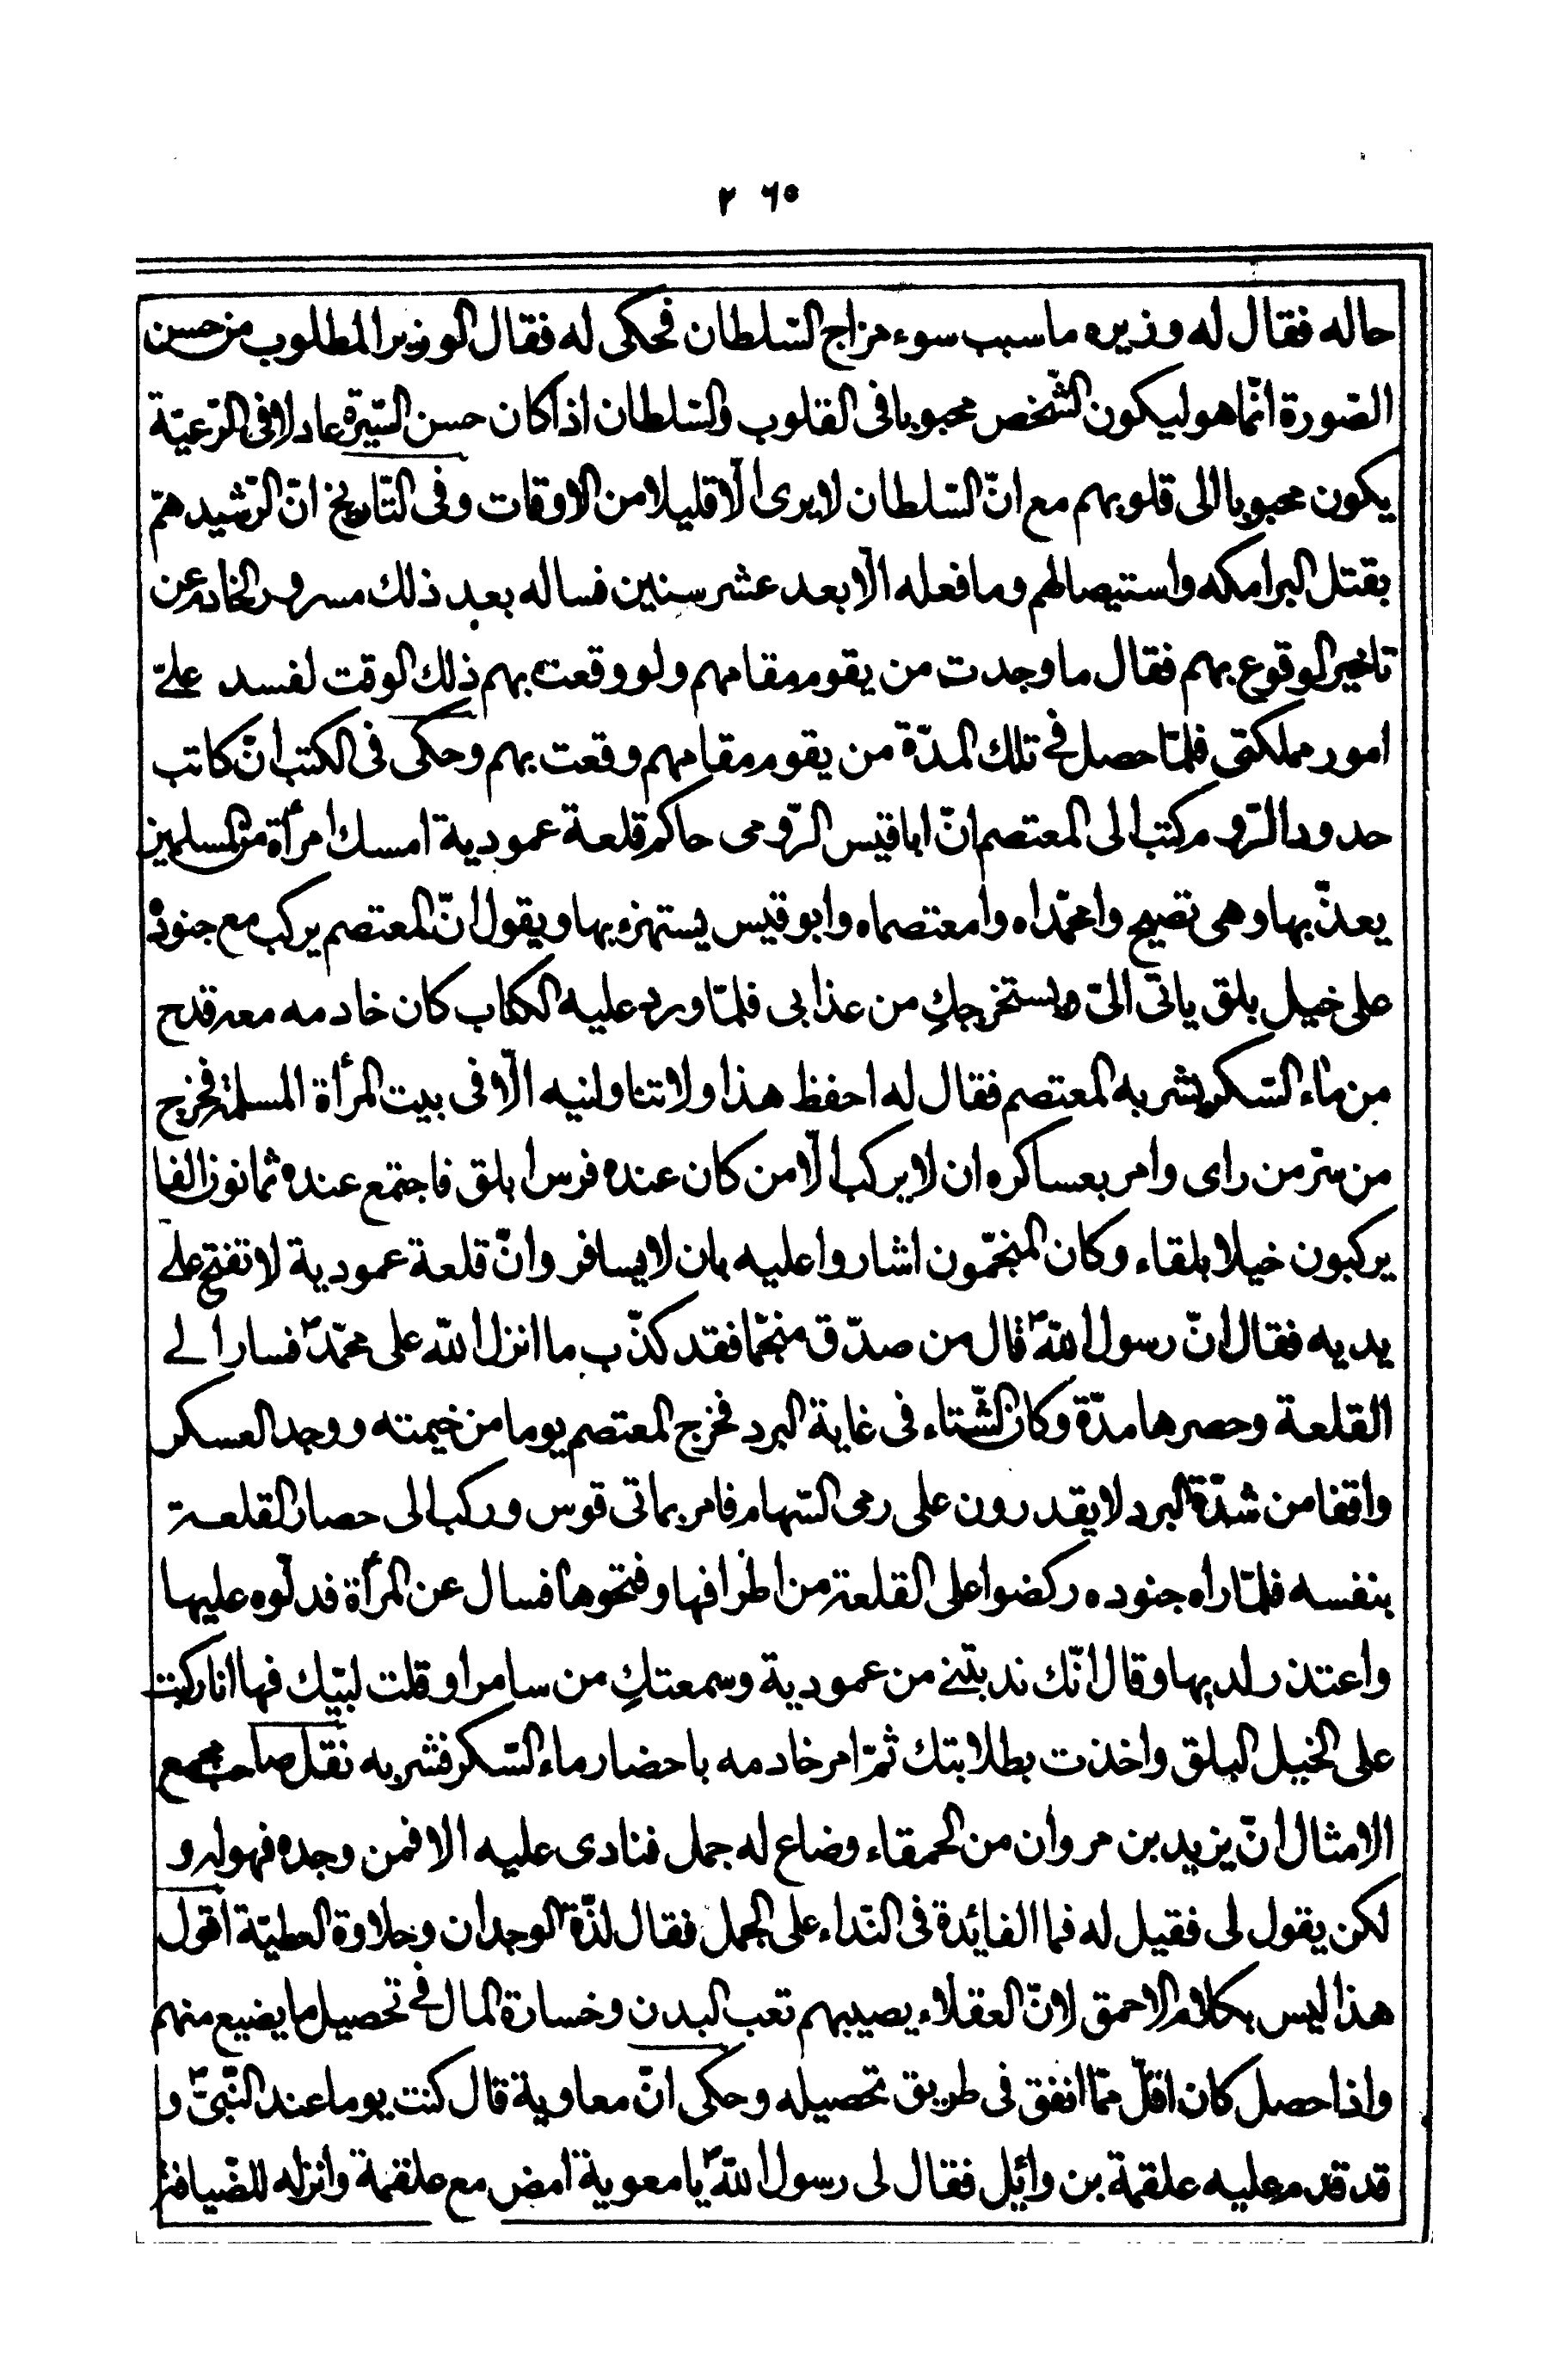 ٢٦٥
حاله فقال له وزيره ما سبب سوء مزاج السّلطان فحكى له فقال الوزير المطلوب من حسن
الصّورة انّما هو ليكون الشّخص محبوبا فى القلوب والسّلطان اذا كان حسن السّيرة عادلا فى الرّعيّة
يكون محبوبا الى قلوبهم مع انّ السّلطان لا يرى الّا قليلا من الاوقات وفى التّاريخ انّ الرّشيد همّ
بقتل البرامكه واستيصالهم وما فعله الّا بعد عشر سنين فساله بعد ذلك مسرور الخادم عن
تاخير الوقوع بهم فقال ما وجدت من يقوم مقامهم ولو وقعت بهم ذلك الوقت لفسد علىّ
امور مملكتى فلمّا حصل فى تلك المدّة من يقوم مقامهم وقعت بهم وحكى فى الكتب انّ كاتب
حدود الرّوم كتب الى المعتصم انّ ابا قيس الرّومى حاكم قلعة عمودية امسك امرأة من المسلمين
يعذّبها وهى تصيح وا محمّداه وا معتصماه وابو قيس يستهزء بها ويقول انّ المعتصم يركب مع جنوده
على خيل بلق ياتى الىّ ويستخرجكِ من عذابى فلمّا ورد عليه الكتاب كان خادمه معه قدح
من ماء السّكر ليشربه المعتصم فقال له احفظ هذا ولا تناولنيه الّا فى بيت المرأة المسلمة فخرج
من سرّ من راى وامر بعساكره ان لا يركب الّا من كان عنده فرس ابلق فاجتمع عنده ثمانون الفا
يركبون خيلا بلقاء وكان المنجّمون اشاروا عليه بان لا يسافر وانّ قلعة عمودية لا تفتح على
يديه فقال انّ رسول اللّه ص قال من صدّق منجّما فقد كذّب ما انزل اللّه على محمّد ص فسار الى
القلعة وحصرها مدّة وكان الشّتاء فى غاية البرد فخرج المعتصم يوما من خيمته ووجد العسكر
واقفا من شدّة البرد لا يقدرون على رمى السّهام فامر بماتى قوس وركب الى حصار القلعة
بنفسه فلمّا راه جنوده ركضوا على القلعة من اطرافها وفتحوها فسال عن المرأة فدلّوه عليها
واعتذر لديها وقال انّك ندبتنى من عمودية وسمعتكِ من سامرا وقلت لبّيك فها انا ركبت
على الخيل البلق واخذت بطلابتك ثمّ امر خادمه باحضار ماء السّكر فشربه نقل صاحب مجمع
الامثال انّ يزيد بن مروان من الحمقاء وضاع له جمل فنادى عليه الا فمن وجده فهو له و
لكن يقول لى فقيل له فما الفايدة فى النّداء على الجمل فقال لذّة الوجدان وحلاوة العطيّة اقول
هذا ليس بكلام الاحمق لانّ العقلاء يصيبهم تعب البدن وخسارة المال فى تحصيل ما يضيع منهم
واذا حصل كان اقلّ ممّا انفق فى طريق تحصيله وحكى انّ معاوية قال كنت يوما عند النّبىّ ص و
قد قدم عليه علقمة بن وائل فقال لى رسول اللّه ص يا معوية امض مع علقمة وانزله للضّيافة